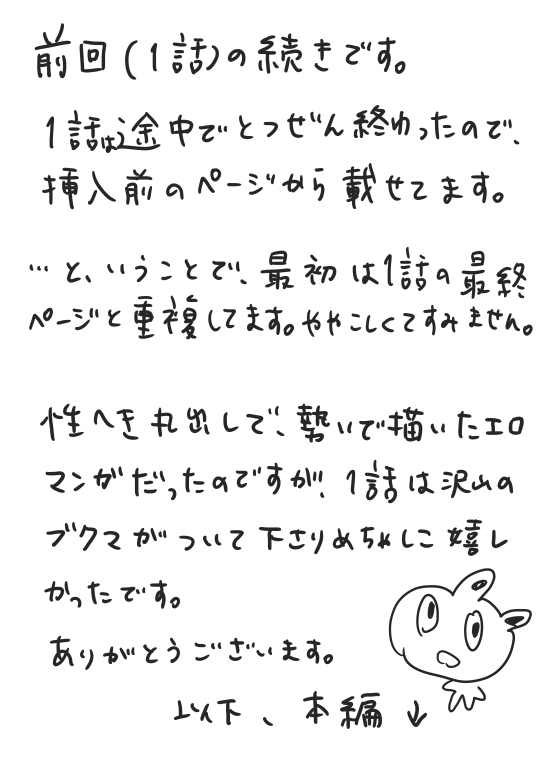 前回(1話)の続きです。
1話は途中でとつぜん終わったので、
挿入前のページから載せてます。
…と、いうことで、最初は1話の最終
ページと重複してます。ややこしくてすみません。
性へき丸出しで、勢いで描いたエロ
マンガだったのですが、1話は沢山の
ブクマがついて下さりめちゃしこ嬉し
かったです。
ありがとうございます。
以下、本編↓